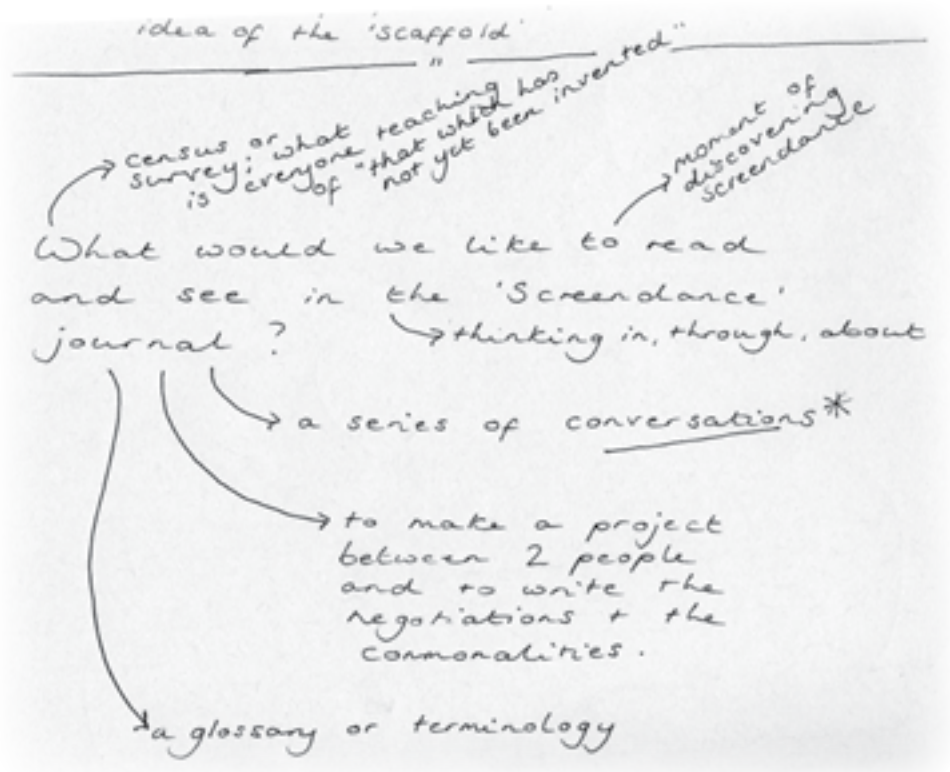 idea of the 'scaffold'
"
census or
survey; what
is everyone teaching
of "that which has
not yet been invented"
moment of
discovering
screendance
What would we like to read
and see in the 'Screendance'
journal ?
thinking in, through, about
a series of conversations*
to make a project
between 2 people
and to write the
negotiations + the
commonalities.
a glossary or terminology